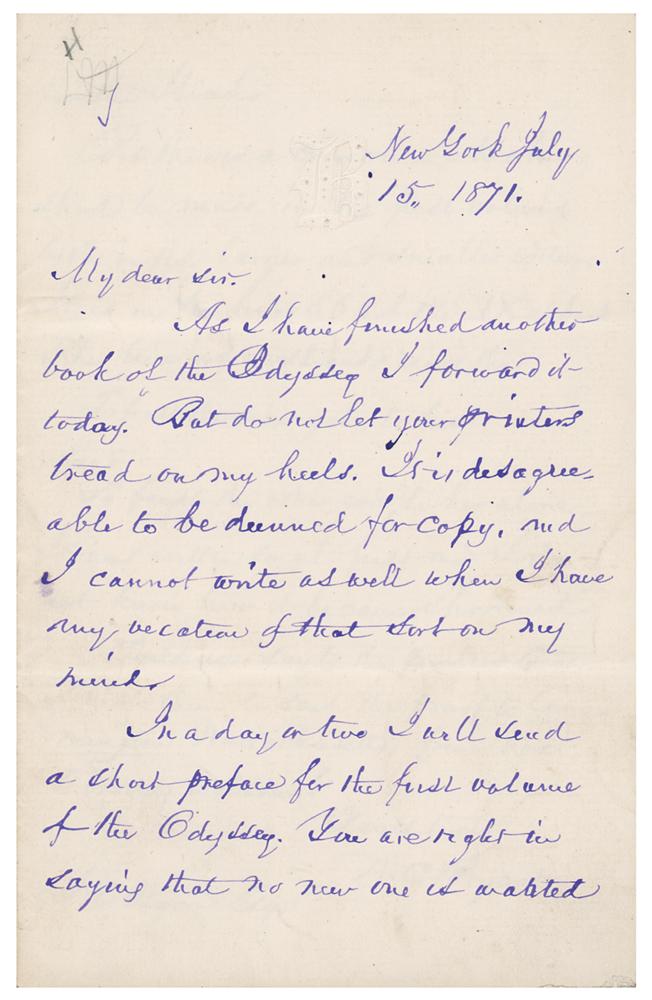 4
New York July
15, 1871.
My dear sir.
As I have finished another
book of the Odyssey I forward it
today. But do not let your printers
tread on my heels. It is disagree-
able to be dunned for copy, and
I cannot write as well when I have
my vecation of that sort on my
mind.
In a day or two I will send
a short preface for the first volume
of the Odyssey. You are right in
saying that no new one is wanted